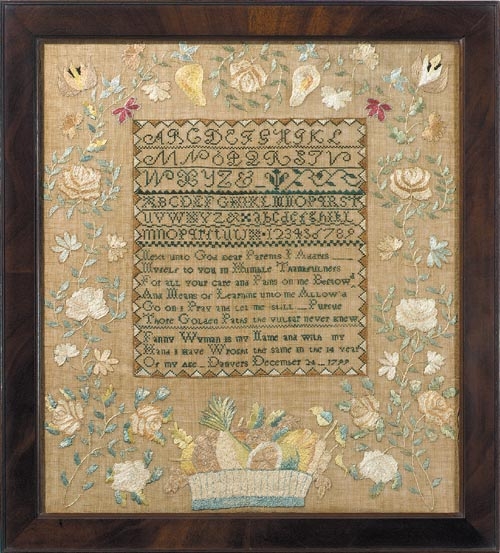 ABCDEFGHIKL
MNOPQRSTV
WXYZ&
ABCDEFGHIKLMNOPQRST
UVWXYZ& abcdefghikl
mnopqrstuvwxyz 123456789
Next unto God dear Parents I Address
Myself to you in Humble Thankfulness
For all your care and Pains on me Bestowd
And Means of Learning unto me Allowd
Go on I Pray and let me still Pursue
Those Golden Paths the vulgar never knew
Fanny Wyman is my Name and with my
Hand I Have Wrought the same in the 14 year
Of my age Danvers December 24 1799